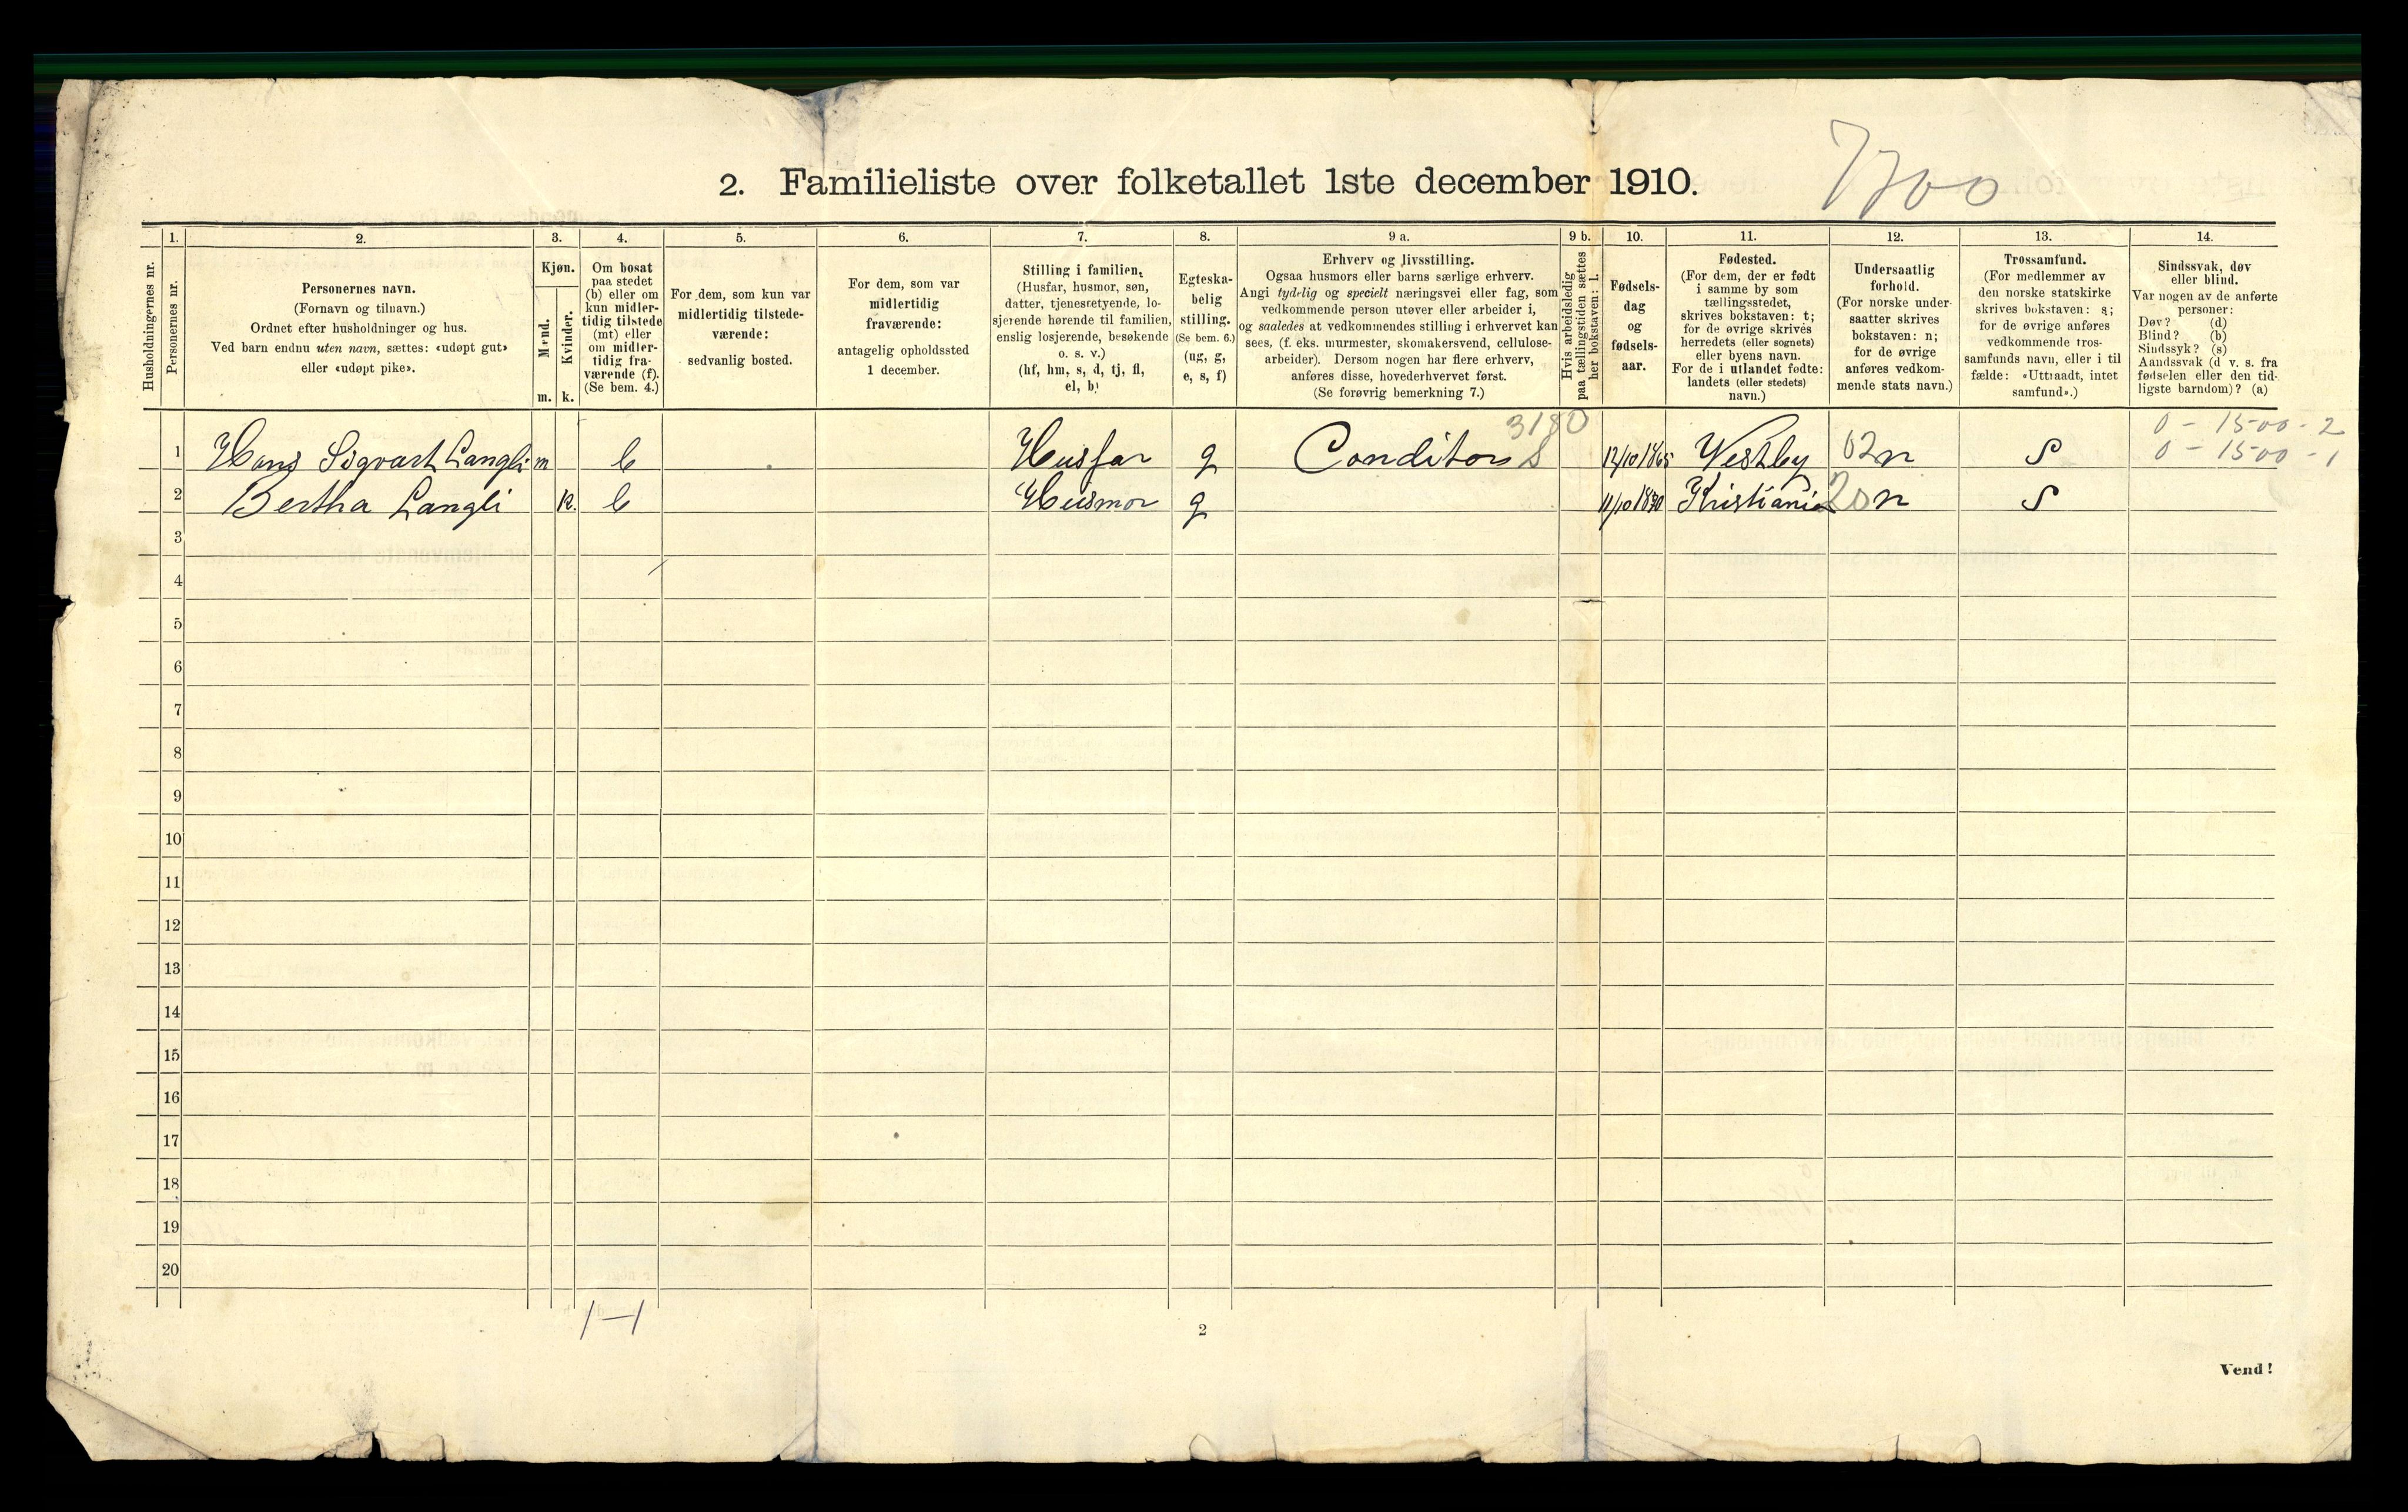 2. Familieliste over folketallet 1ste december 1910.
7700
Husholdningernes nr.
1.
Personernes nr.
2.
Personernes navn.
(Fornavn og tilnavn.)
Ordnet efter husholdninger og hus.
Ved barn endnu uten navn, sættes: «udøpt gut»
eller «udøpt pike».
3.
Kjøn.
Mænd.
Kvinder.
m. k.
4.
Om bosat
paa stedet
(b) eller om
kun midler-
tidig tilstede
(mt) eller
om midler-
tidig fra-
værende (f).
(Se bem. 4.)
5.
For dem, som kun var
midlertidig tilstede-
værende:
sedvanlig bosted.
6.
For dem, som var
midlertidig
fraværende:
antagelig opholdssted
1 december.
7.
Stilling i familien,
(Husfar, husmor, søn,
datter, tjenestetyende, lo-
sjerende hørende til familien,
enslig losjerende, besøkende
o. s. v.)
(hf, hm, s, d, tj, fl,
el, b)
8.
Egteska-
belig
stilling.
(Se bem. 6.)
(ug, g,
e, s, f)
9 a.
Erhverv og livsstilling.
Ogsaa husmors eller barns særlige erhverv.
Angi tydelig og specielt næringsvei eller fag, som
vedkommende person utøver eller arbeider i,
og saaledes at vedkommendes stilling i erhvervet kan
sees, (f. eks. murmester, skomakersvend, cellulose-
arbeider). Dersom nogen har flere erhverv,
anføres disse, hovederhvervet først.
(Se forøvrig bemerkning 7.)
9 b.
Hvis arbeidsledig
paa tællingstiden sættes
her bokstaven: l.
10.
Fødsels-
dag
og
fødsels-
aar.
11.
Fødested.
(For dem, der er født
i samme by som
tællingsstedet,
skrives bokstaven: t;
for de øvrige skrives
herredets (eller sognets)
eller byens navn.
For de i utlandet fødte:
landets (eller stedets)
navn.)
12.
Undersaatlig
forhold.
(For norske under-
saatter skrives
bokstaven: n;
for de øvrige
anføres vedkom-
mende stats navn.)
13.
Trossamfund.
(For medlemmer av
den norske statskirke
skrives bokstaven: s;
for de øvrige anføres
vedkommende tros-
samfunds navn, eller i til
fælde: «Uttraadt, intet
samfund».)
14.
Sindssvak, døv
eller blind.
Var nogen av de anførte
personer:
Døv? (d)
Blind? (b)
Sindssyk? (s)
Aandssvak (d v. s. fra
fødselen eller den tid-
ligste barndom)? (a)
3180
0 - 1500 - 2
1 Hans Sigvart Langli m b Husfar g Conditor S 12/10 1865 Vestby 02 n S 0 - 1500 - 1
2 Bertha Langli k. b Husmor g Kristiania 20 n S
3
4
5
6
7
8
9
10
11
12
13
14
15
16
17
18
19
20
1-1
2
Vend!